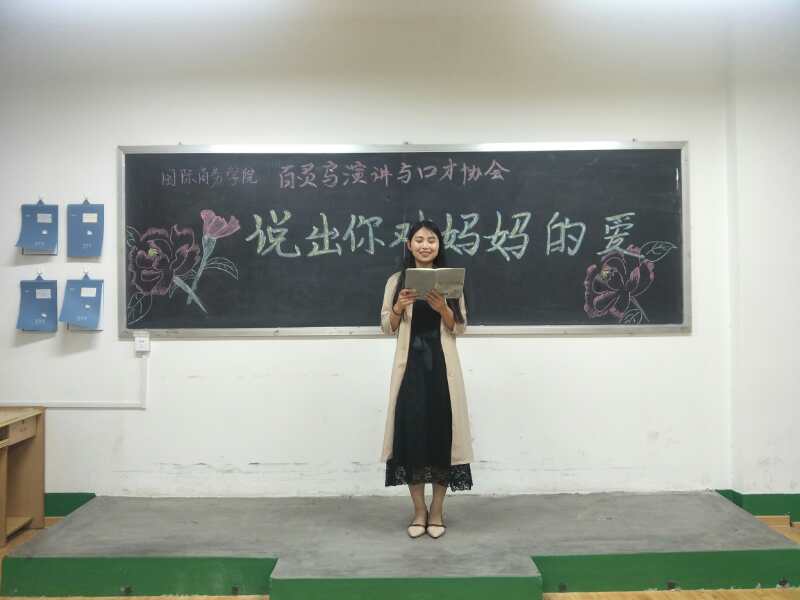 国际商务学院 百灵鸟演讲与口才协会
说出你对妈妈的爱